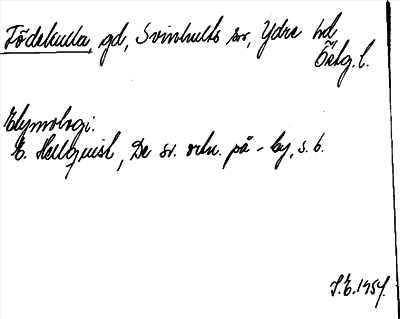 Födekulla, gd, Svinhults sn, Ydre hd,
Östg. l.
Etymologi:
E. Hellquist, De sv. ortn. på -by, s. 6.
S.E. 1954.